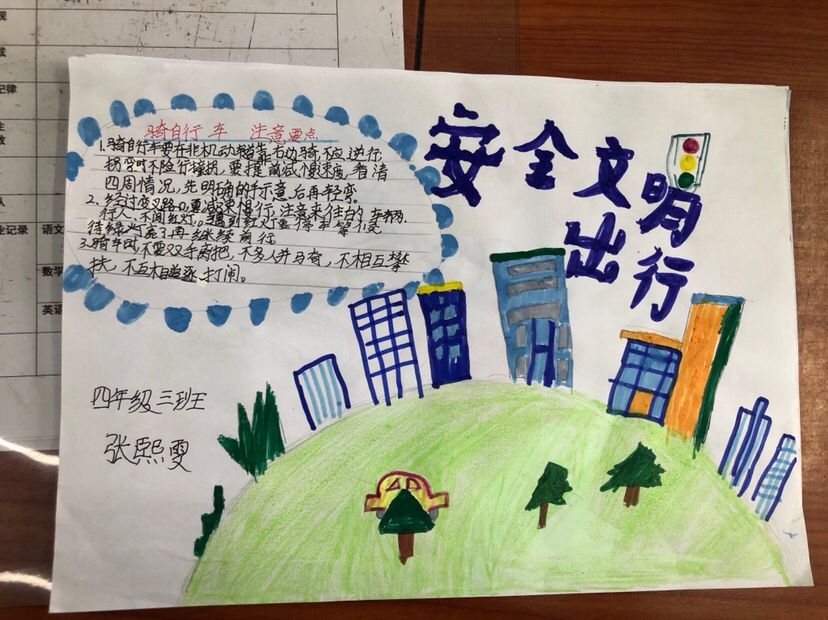 安全文明
出行
骑自行车 注意要点
1、骑自行车要在非机动车道靠右边骑,不应逆行,
拐弯时不险行猛拐,要提前减慢速度,看清
四周情况,先明确的手示意后再轻弯。
2、经过交叉路口,要减速慢行,注意来往的车辆、
行人,不闯红灯,骑到红灯要停车等候,
待绿灯亮了再继续前行
3、骑车时不要双手离把,不多人并马奇,不相互攀
扶,不互相追逐、打闹。
四年级三班
张熙雯
纪律
语文
数学
英语